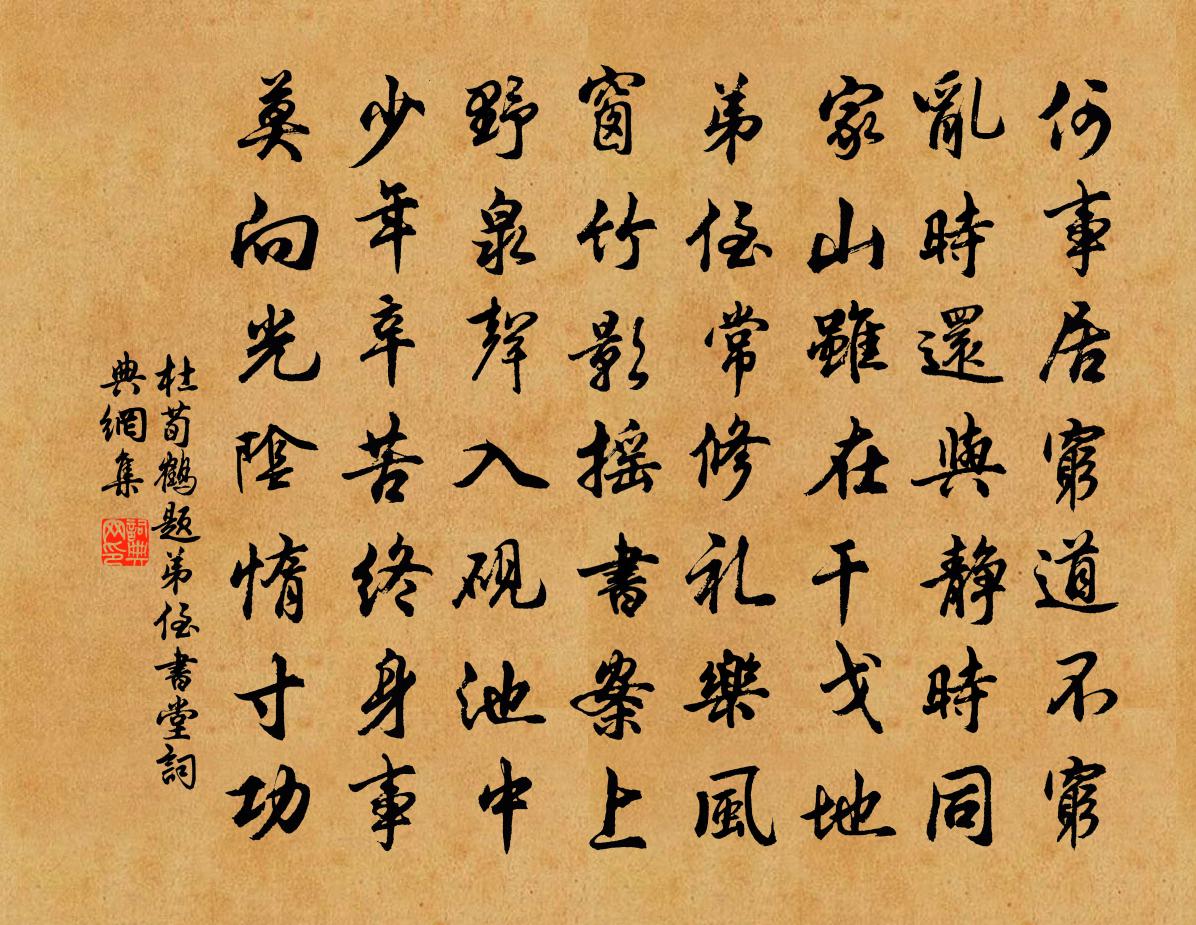 何事居窮道不窮
亂時還與静時同
家山雖在干戈地
弟侄常修礼樂風
窗竹影摇書案上
野泉聲入硯池中
少年辛苦終身事
莫向光陰惰寸功
杜荀鶴題弟侄書堂詞
典網集
詞典
网印